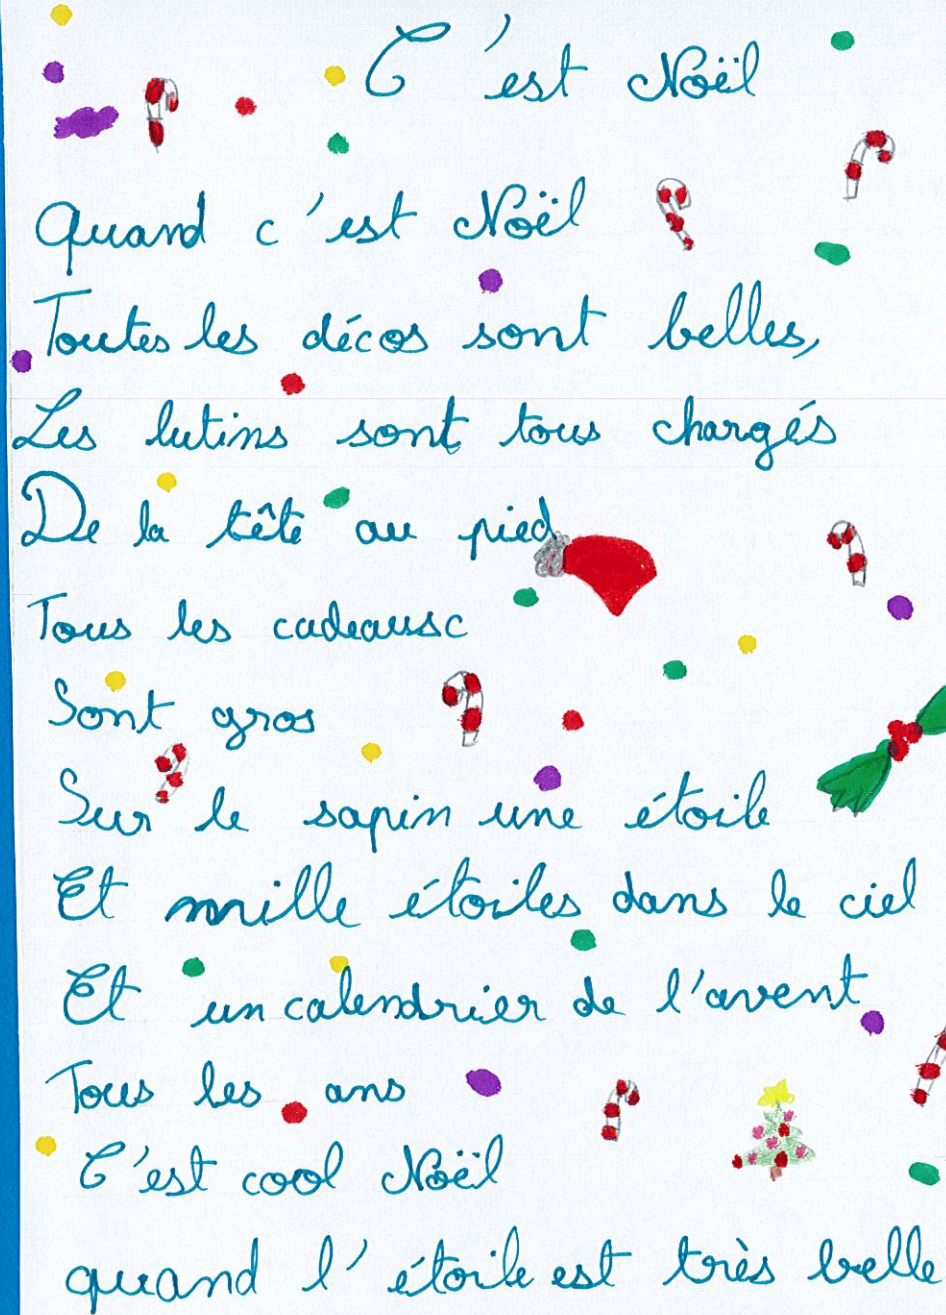 C'est Noël
Quand c'est Noël
Toutes les décos sont belles,
Les lutins sont tous chargés
De la tête au pied
Tous les cadeaux
Sont gros
Sur le sapin une étoile
Et mille étoiles dans le ciel
Et un calendrier de l'avent
Tous les ans
C'est cool Noël
quand l'étoile est très belle